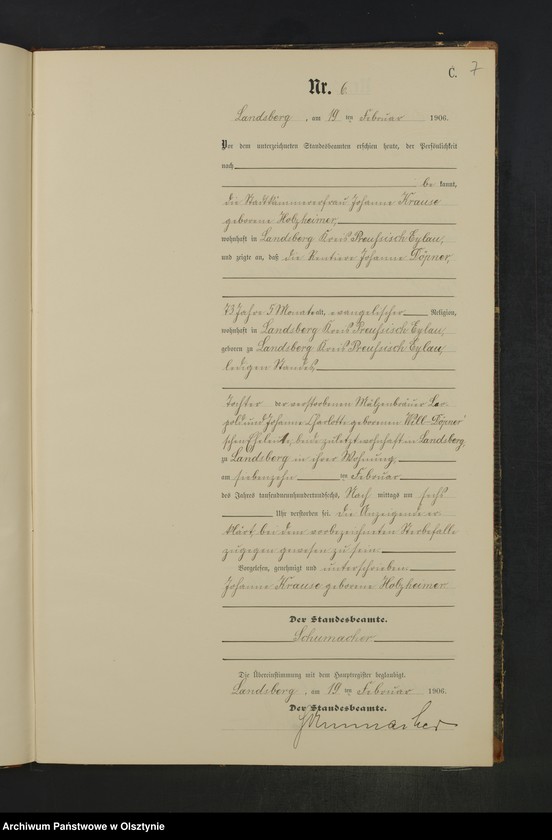 C. 7
Nr. 6
Landsberg, am 19 ten Februar 1906.
Vor dem unterzeichneten Standesbeamten erschien heute, der Persönlichkeit
nach
be kannt,
die Stadtkämmererfrau Johanne Krause
geborene Holzheimer,
wohnhaft in Landsberg Kreis Preußisch Eylau,
und zeigte an, daß die Rentiere Johanne Töpner,
73 Jahre 5 Monate alt, evangelischer Religion,
wohnhaft in Landsberg Kreis Preußisch Eylau,
geboren zu Landsberg Kreis Preußisch Eylau,
ledigen Standes,
Tochter der verstorbenen Mälzenbräuer Leo-
pold und Johanne Charlotte geborenen Will-Töpner
schen Eheleute, beide zuletzt wohnhaft in Landsberg,
zu Landsberg in ihrer Wohnung,
am siebenzehn ten Februar
des Jahres tausendneunhundertundsechs, Nach mittags um sechs
Uhr verstorben sei. Die Anzeigende er-
klärt, bei dem vorbezeichneten Sterbefalle
zugegen gewesen zu sein.
Vorgelesen, genehmigt und unterschrieben
Johanne Krause geborene Holzheimer
Der Standesbeamte.
Schumacher
Die Übereinstimmung mit dem Hauptregister beglaubigt.
Landsberg, am 19 ten Februar 1906.
Der Standesbeamte.
Schumacher
Archiwum Państwowe w Olsztynie